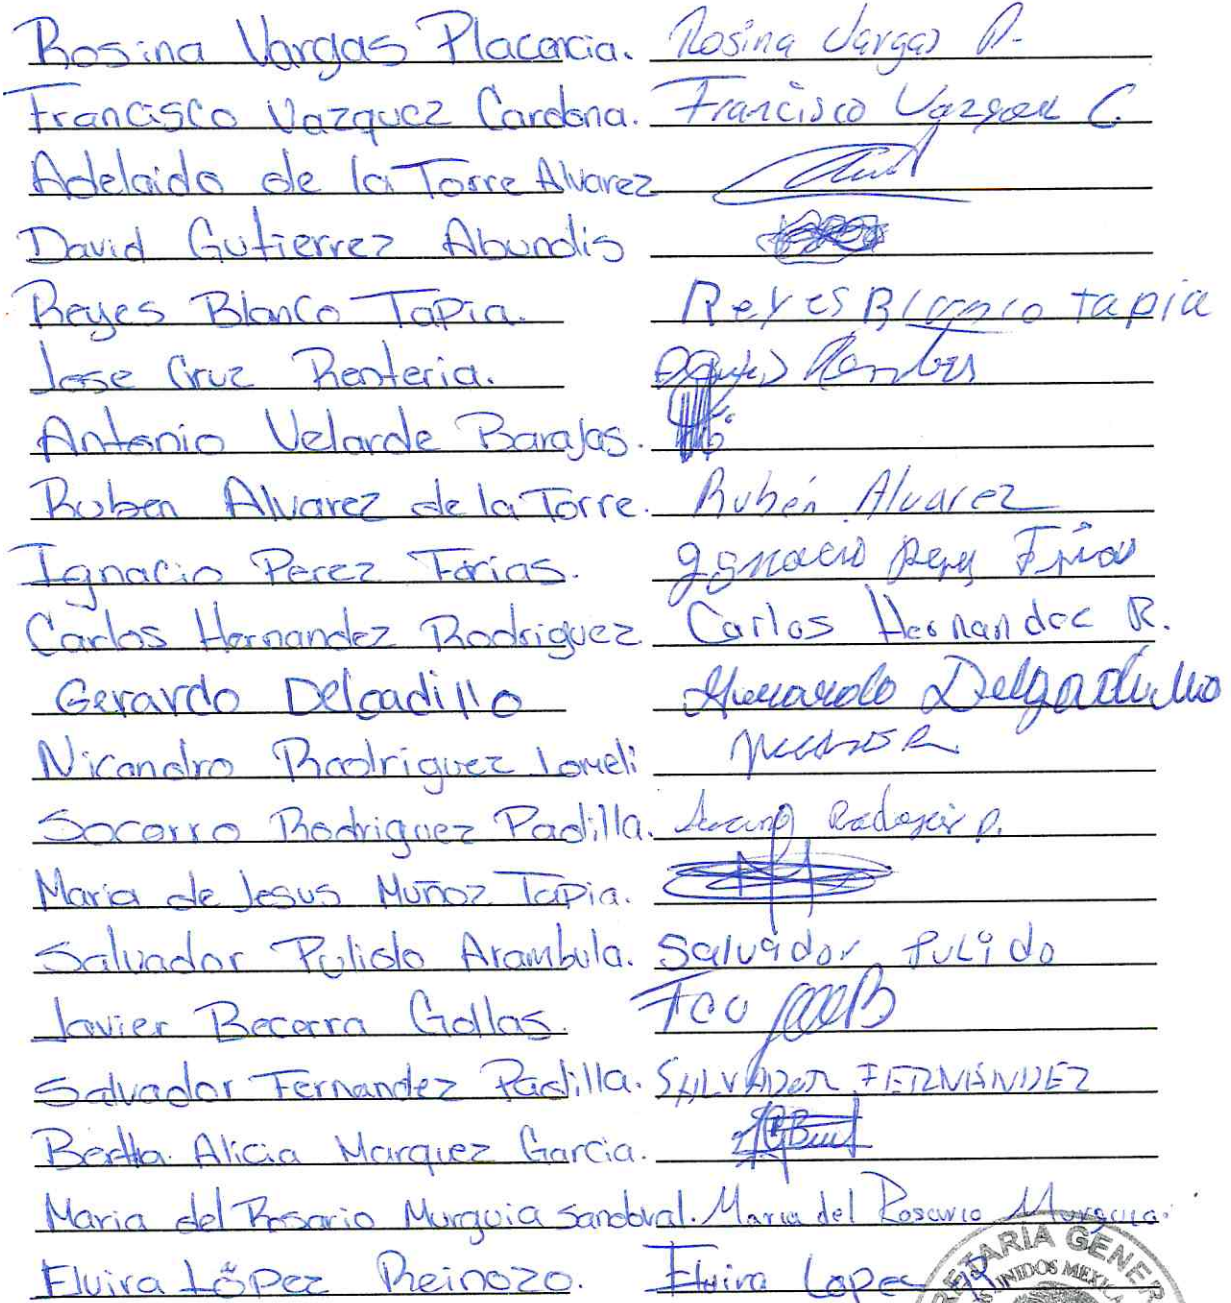 Rosina Vargas Placencia. Rosina Vargas P.
Francisco Vazquez Cardona. Francisco Vazquez C.
Adelaido de la Torre Alvarez
David Gutierrez Abundis
Reyes Blanco Tapia. Reyes Blanco tapia
Jose Cruz Renteria.
Antonio Velarde Barajas.
Ruben Alvarez de la Torre. Rubén Alvarez
Ignacio Perez Farias. Ignacio
Carlos Hernandez Rodriguez Carlos Hernandec R.
Gerardo Delgadillo Delgadillo
Nicandro Rodriguez Lomeli
Socorro Rodriguez Padilla.
Maria de Jesus Muñoz Tapia.
Salvador Pulido Arambula. Salvador Pulido
Javier Becerra Gollas.
Salvador Fernandez Padilla. SALVADOR FERNÁNDEZ
Bertha Alicia Marquez Garcia.
Maria del Rosario Murguia Sandoval. Maria del Rosario Murguia
Elvira López Reinozo. Elvira Lopez